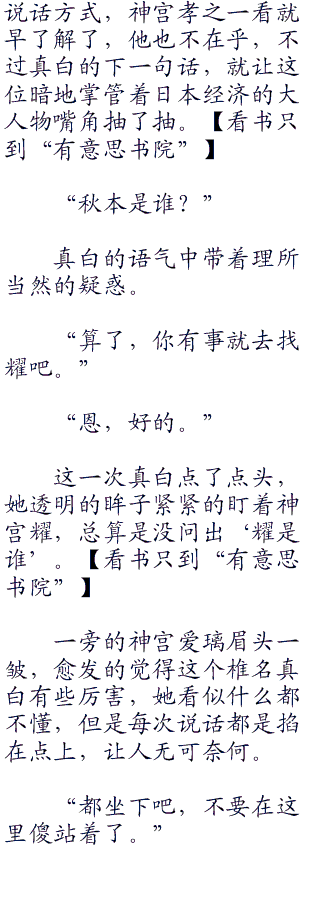 说话方式，神宫孝之一看就
早了解了，他也不在乎，不
过真白的下一句话，就让这
位暗地掌管着日本经济的大
人物嘴角抽了抽。【看书只
到“有意思书院”】
“秋本是谁？”
真白的语气中带着理所
当然的疑惑。
“算了，你有事就去找
耀吧。”
“恩，好的。”
这一次真白点了点头，
她透明的眸子紧紧的盯着神
宫耀，总算是没问出‘耀是
谁’。【看书只到“有意思
书院”】
一旁的神宫爱璃眉头一
皱，愈发的觉得这个椎名真
白有些厉害，她看似什么都
不懂，但是每次说话都是掐
在点上，让人无可奈何。
“都坐下吧，不要在这
里傻站着了。”